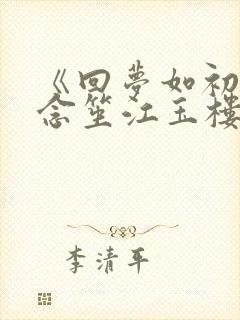 《回夢如初
念笙江玉樓
李清平